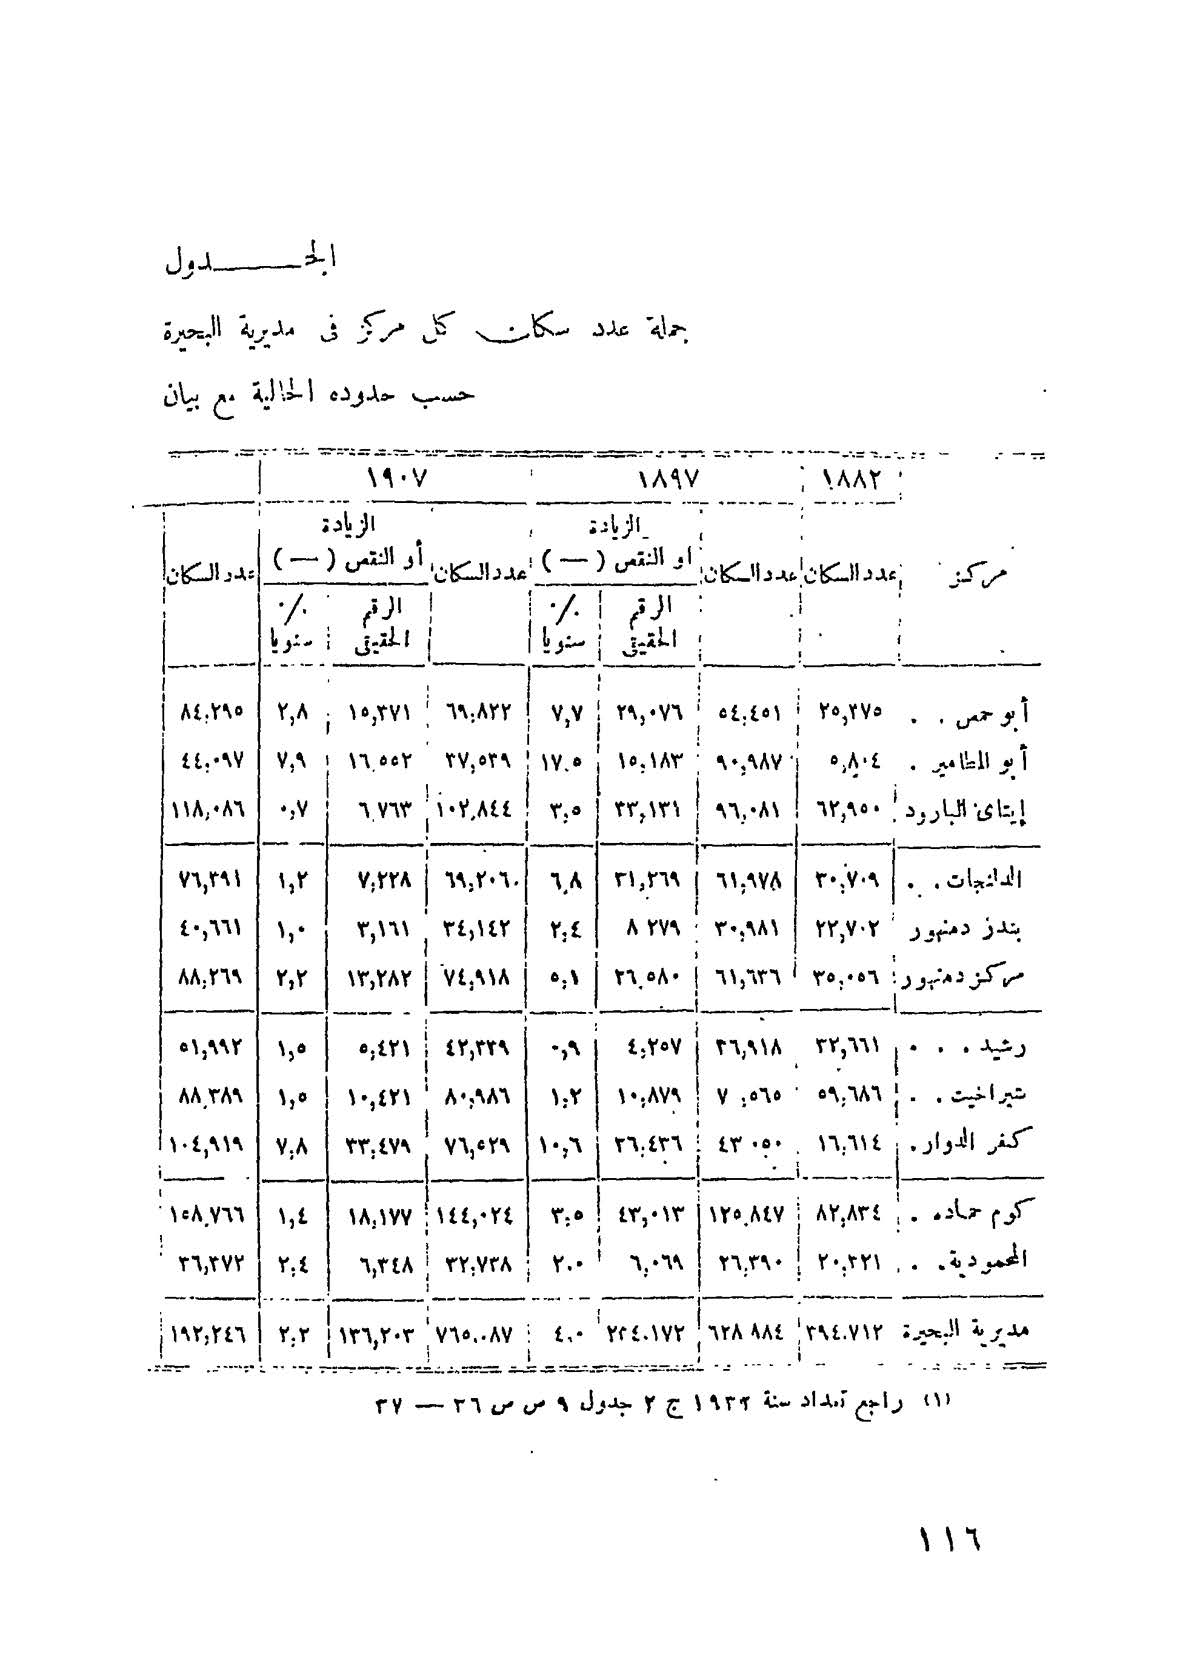 الجـــــدول
جملة عدد سكان كل مركز فى مديرية البحيرة
حسب حدوده الحالية مع بيان
١٨٨٢ ١٨٩٧ ١٩٠٧
مركز عدد السكان عدد السكان الزيادة او النقص ( — ) عدد السكان الزيادة أو النقص ( — ) عدد السكان
الرقم الحقيقى ٪ سنويا الرقم الحقيقى ٪ سنويا
أبو حمص . . ٢٥,٣٧٥ ٥٤,٤٥١ ٢٩,٠٧٦ ٧,٧ ٦٩,٨٢٢ ١٥,٣٧١ ٢,٨ ٨٤,٢٩٥
أبو المطامير . ٥,٨٠٤ ٩٠,٩٨٧ ١٥,١٨٣ ١٧,٥ ٣٧,٥٣٩ ١٦,٥٥٢ ٧,٩ ٤٤,٠٩٧
إيتاى البارود ٦٢,٩٥٠ ٩٦,٠٨١ ٣٣,١٣١ ٣,٥ ١٠٢,٨٤٤ ٦,٧٦٣ ٠,٧ ١١٨,٠٨٦
الدلنجات . . ٣٠,٧٠٩ ٦١,٩٧٨ ٣١,٢٦٩ ٦,٨ ٦٩,٢٠٦ ٧,٢٢٨ ١,٢ ٧٦,٣٩١
بندر دمنهور ٢٢,٧٠٢ ٣٠,٩٨١ ٨ ٢٧٩ ٢,٤ ٣٤,١٤٢ ٣,١٦١ ١,٠ ٤٠,٦٦١
مركز دمنهور ٣٥,٠٥٦ ٦١,٦٣٦ ٢٦,٥٨٠ ٥,١ ٧٤,٩١٨ ١٣,٢٨٢ ٢,٢ ٨٨,٢٦٩
رشيد . . . ٣٢,٦٦١ ٣٦,٩١٨ ٤,٢٥٧ ٠,٩ ٤٢,٣٣٩ ٥,٤٢١ ١,٥ ٥١,٩٩٢
شبراخيت . . ٥٩,٦٨٦ ٧ ,٥٦٥ ١٠,٨٧٩ ١,٢ ٨٠,٩٨٦ ١٠,٤٢١ ١,٥ ٨٨,٣٨٩
كفر الدوار . ١٦,٦١٤ ٤٣ ٠٥٠ ٢٦,٤٣٦ ١٠,٦ ٧٦,٥٢٩ ٣٣,٤٧٩ ٧,٨ ١٠٤,٩١٩
كوم حماده . ٨٢,٨٣٤ ١٢٥,٨٤٧ ٤٣,٠١٣ ٣,٥ ١٤٤,٠٢٤ ١٨,١٧٧ ١,٤ ١٥٨,٧٦٦
المحمودية . . ٢٠,٣٢١ ٢٦,٣٩٠ ٦,٠٦٩ ٢,٠ ٣٢,٧٣٨ ٦,٣٤٨ ٢,٤ ٣٦,٣٧٢
مديرية البحيرة ٣٩٤,٧١٢ ٦٢٨ ٨٨٤ ٢٣٤,١٧٢ ٤,٠ ٧٦٥,٠٨٧ ١٣٦,٢٠٣ ٢,٢ ١٩٢,٢٤٦
(١) راجع تعداد سنة ١٩٣٧ ج ٢ جدول ٩ ص ص ٢٦ — ٢٧
١١٦